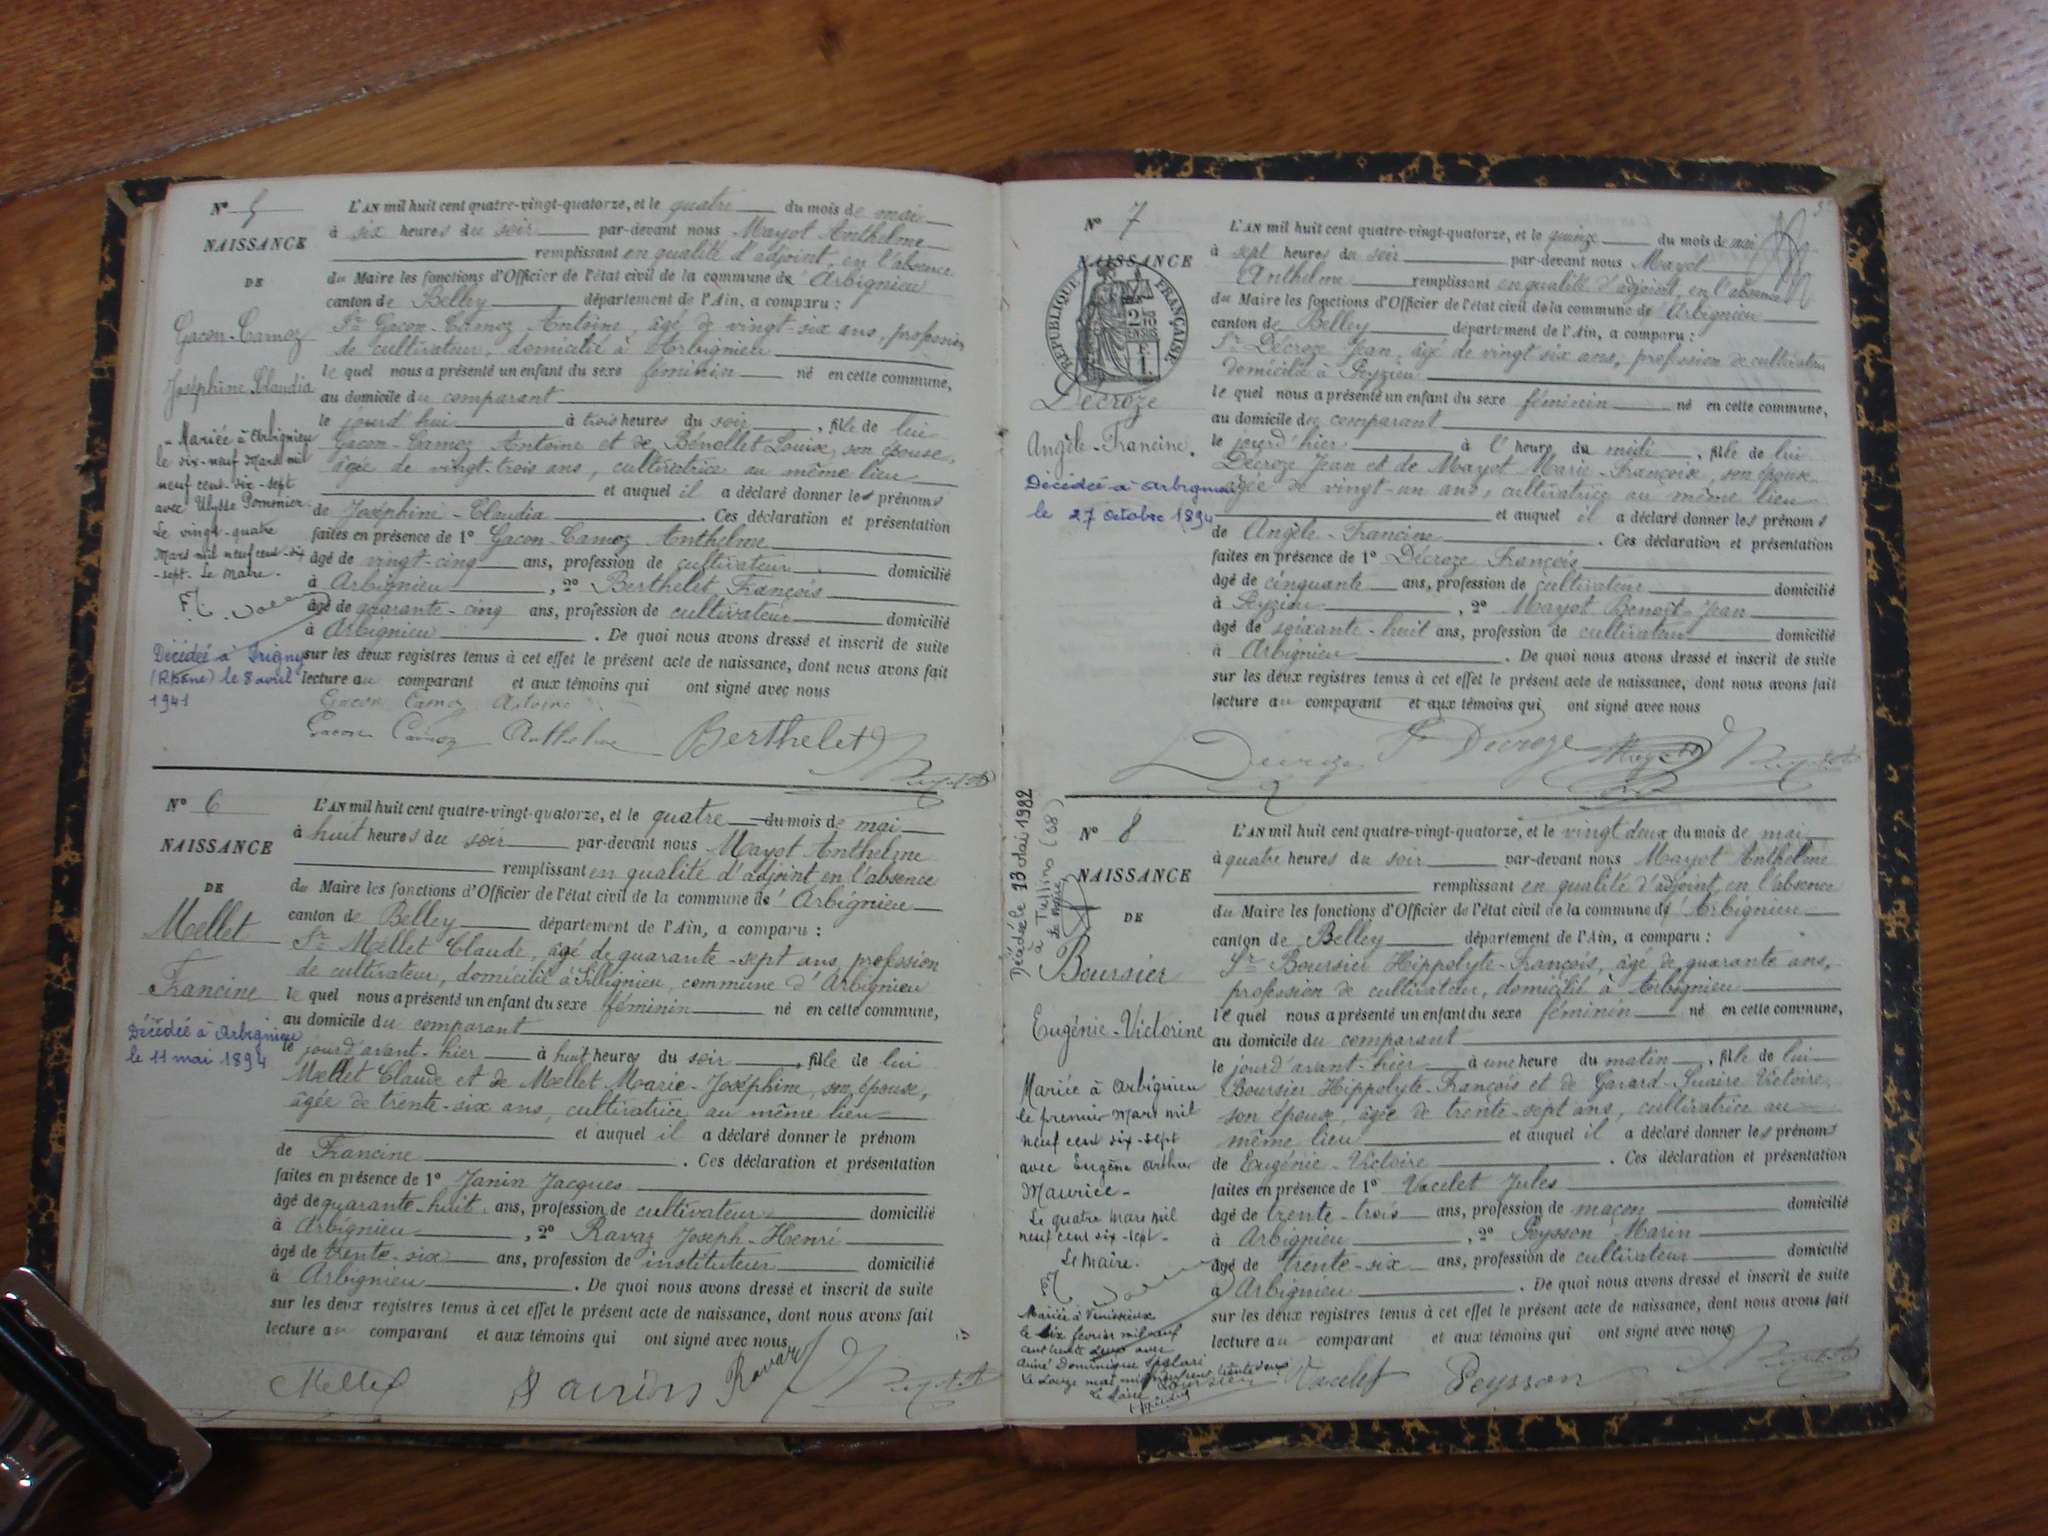 N° 5
NAISSANCE
DE
Gacon-Camoz
Joséphine Claudia
- Mariée à Arbignieu
le dix-neuf Mars mil
neuf cent-dix-sept
avec Ulysse Pommier
Le vingt-quatre
Mars mil neuf cent-dix
-sept- Le Maire.
Décédée à Irigny
(Rhône) le 8 avril
1941
L'AN mil huit cent quatre-vingt-quatorze, et le quatre du mois de mai
à six heures du soir par-devant nous Mayot Anthelme
remplissant en qualité d'adjoint, en l'absence
du Maire les fonctions d'Officier de l'état civil de la commune d' Arbignieu
canton de Belley département de l'Ain, a comparu :
Sr Gacon-Camoz Antoine, âgé de vingt-six ans, profession
de cultivateur, domicilié à Arbignieu
le quel nous a présenté un enfant du sexe féminin né en cette commune,
au domicile du comparant
le jourd'hui à trois heures du soir, fille de lui
Gacon-Camoz Antoine et de Benollet Louise, son épouse,
âgée de vingt-trois ans, cultivatrice au même lieu
et auquel il a déclaré donner les prénoms
de Joséphine-Claudia. Ces déclaration et présentation
faites en présence de 1° Gacon-Camoz Anthelme
âgé de vingt-cinq ans, profession de cultivateur domicilié
à Arbignieu, 2° Berthelet François
âgé de quarante-cinq ans, profession de cultivateur domicilié
à Arbignieu. De quoi nous avons dressé et inscrit de suite
sur les deux registres tenus à cet effet le présent acte de naissance, dont nous avons fait
lecture au comparant et aux témoins qui ont signé avec nous
Gacon Camoz Antoine
Gacon Camoz Anthelme Berthelet
N° 6
NAISSANCE
DE
Mellet
Francine
Décédée à Arbignieu
le 11 mai 1894
L'AN mil huit cent quatre-vingt-quatorze, et le quatre du mois de mai
à huit heures du soir par-devant nous Mayot Anthelme
remplissant en qualité d'adjoint en l'absence
du Maire les fonctions d'Officier de l'état civil de la commune d' Arbignieu
canton de Belley département de l'Ain, a comparu :
Sr Mellet Claude, âgé de quarante-sept ans, profession
de cultivateur, domicilié à Sillignieu, commune d'Arbignieu
le quel nous a présenté un enfant du sexe féminin né en cette commune,
au domicile du comparant
le jourd'avant-hier à huit heures du soir, fille de lui
Mellet Claude et de Mellet Marie-Joséphine, son épouse,
âgée de trente-six ans, cultivatrice au même lieu
et auquel il a déclaré donner le prénom
de Francine. Ces déclaration et présentation
faites en présence de 1° Janin Jacques
âgé de quarante-huit ans, profession de cultivateur domicilié
à Arbignieu, 2° Ravaz Joseph-Henri
âgé de trente-six ans, profession de instituteur domicilié
à Arbignieu. De quoi nous avons dressé et inscrit de suite
sur les deux registres tenus à cet effet le présent acte de naissance, dont nous avons fait
lecture au comparant et aux témoins qui ont signé avec nous
Mellet Janin Ravaz
N° 7
NAISSANCE
RÉPUBLIQUE FRANÇAISE
Décroze
Angèle-Francine.
Décédée à Arbignieu
le 27 Octobre 1894
L'AN mil huit cent quatre-vingt-quatorze, et le quinze du mois de mai
à sept heures du soir par-devant nous Mayot
Anthelme remplissant en qualité d'adjoint, en l'absence
du Maire les fonctions d'Officier de l'état civil de la commune d' Arbignieu
canton de Belley département de l'Ain, a comparu :
Sr Décroze Jean, âgé de vingt six ans, profession de cultivateur
domicilié à Peyzieu
le quel nous a présenté un enfant du sexe féminin né en cette commune,
au domicile du comparant
le jourd'hier à l' heure du midi, fille de lui
Décroze Jean et de Mayot Marie-Françoise, son épouse
âgée de vingt-un ans, cultivatrice au même lieu
et auquel il a déclaré donner les prénoms
de Angèle-Francine. Ces déclaration et présentation
faites en présence de 1° Décroze François
âgé de cinquante ans, profession de cultivateur domicilié
à Peyzieu, 2° Mayot Benoît-Jean
âgé de soixante-huit ans, profession de cultivateur domicilié
à Arbignieu. De quoi nous avons dressé et inscrit de suite
sur les deux registres tenus à cet effet le présent acte de naissance, dont nous avons fait
lecture au comparant et aux témoins qui ont signé avec nous
Decroze F Decroze Mayot
N° 8
NAISSANCE
DE
Boursier
Eugénie-Victorine
Décédée le 23 Mai 1982
Le Maire,
Mariée à Arbignieu
le premier Mars mil
neuf cent dix-sept
avec Eugène Arthur
Maurice-
Le quatre mars mil
neuf cent dix-sept-
Le Maire.
Mariée à Vénissieux
le six février mil neuf
cent trente deux avec
Aimé Dominique
Le Maire
L'AN mil huit cent quatre-vingt-quatorze, et le vingt deux du mois de mai
à quatre heures du soir par-devant nous Mayot Anthelme
remplissant en qualité d'adjoint, en l'absence
du Maire les fonctions d'Officier de l'état civil de la commune d' Arbignieu
canton de Belley département de l'Ain, a comparu :
Sr Boursier Hippolyte-François, âgé de quarante ans,
profession de cultivateur, domicilié à Arbignieu
le quel nous a présenté un enfant du sexe féminin né en cette commune,
au domicile du comparant
le jourd'avant-hier à une heure du matin, fille de lui
Boursier Hippolyte-François et de Garard-Suaire Victoire,
son épouse, âgée de trente-sept ans, cultivatrice au
même lieu et auquel il a déclaré donner les prénoms
de Eugénie-Victoire. Ces déclaration et présentation
faites en présence de 1° Vacelet Jules
âgé de trente-trois ans, profession de maçon domicilié
à Arbignieu, 2° Peysson Marin
âgé de trente-six ans, profession de cultivateur domicilié
à Arbignieu. De quoi nous avons dressé et inscrit de suite
sur les deux registres tenus à cet effet le présent acte de naissance, dont nous avons fait
lecture au comparant et aux témoins qui ont signé avec nous
Boursier Vacelet Peysson